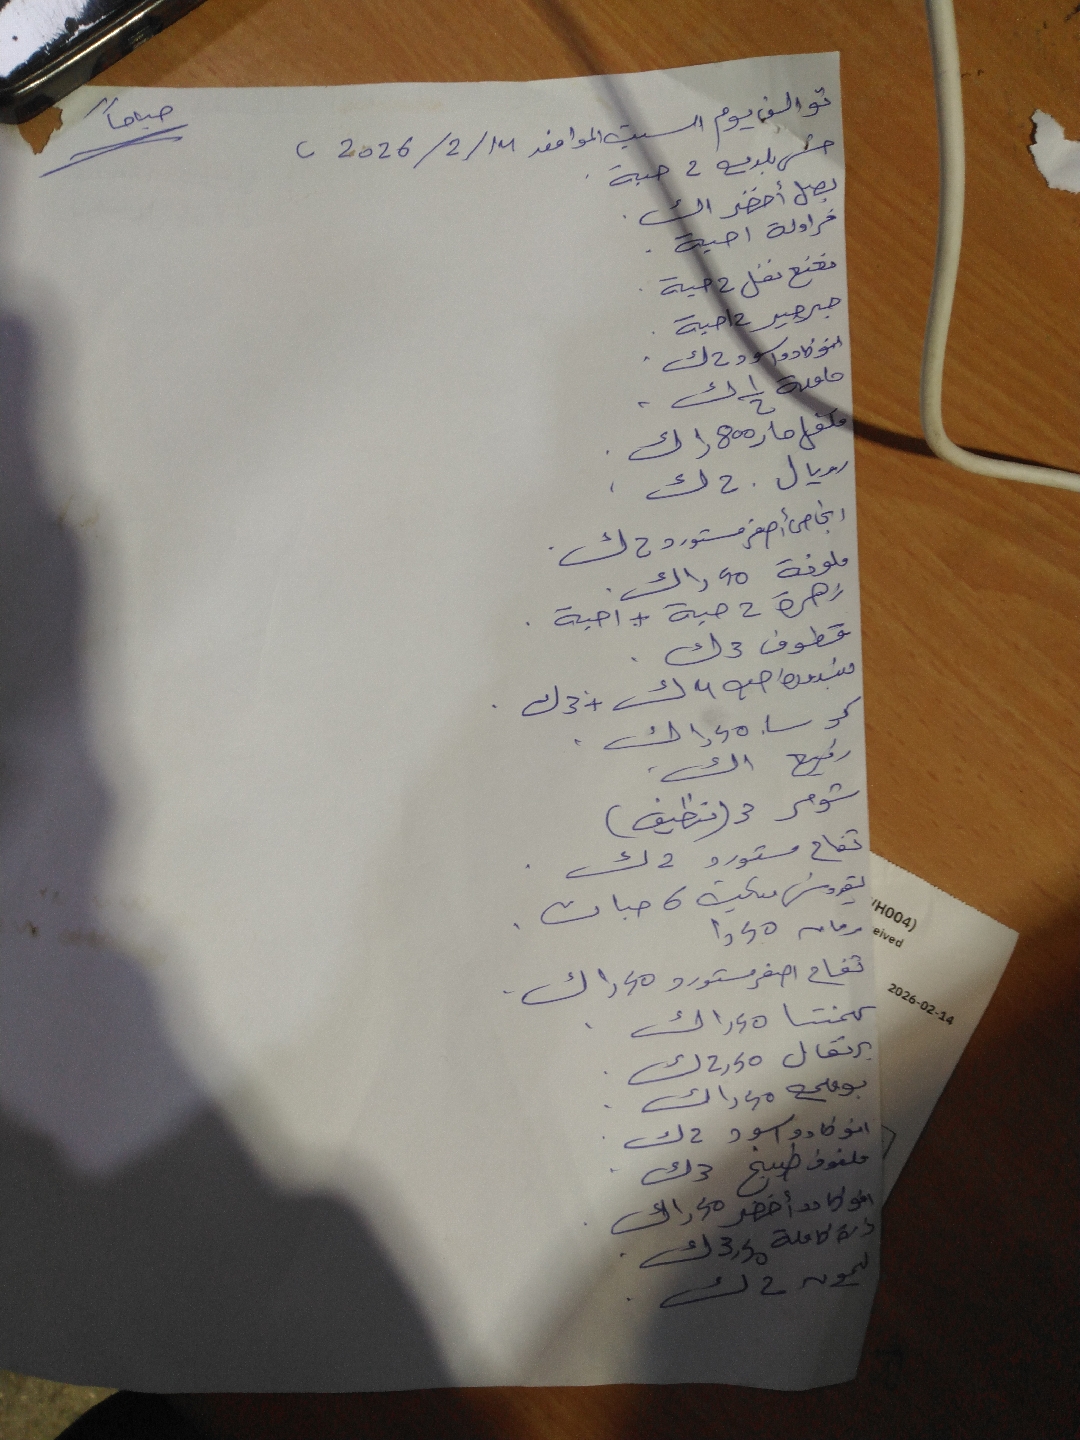 صباحاً
توالف يوم السبت الموافق 2026/2/14
خس بلدي 2 حبة
بصل أخضر 1ك
فراولة 1 حبة
نعنع نفل 2 حبة
جرجير 2 حبة
افوكادو اسود 2ك
ملونة 1/2 ك
فلفل حار 1,800 ك
رويال 2 ك
انجاص أصفر مستورد 2ك
ملوفة 1,50 ك
زهرة 2 حبة + 1 حبة
قطوف 3ك
بندورة 4ك + 3ك
كوسا 1,50 ك
رفيع 1ك
شومر 3 (تنظيف)
تفاح مستورد 2ك
بقدونس 6 حبات
رمان 1,50
تفاح اصفر مستورد 1,50 ك
كلمنتينا 1,50 ك
برتقال 2,50 ك
بوملي 1,50 ك
افوكادو اسود 2ك
ملفوف طبيخ 3ك
افوكادو أخضر 1,50 ك
ذرة كاملة 3,50 ك
ليمون 2 ك
(H004)
eived
2026-02-14